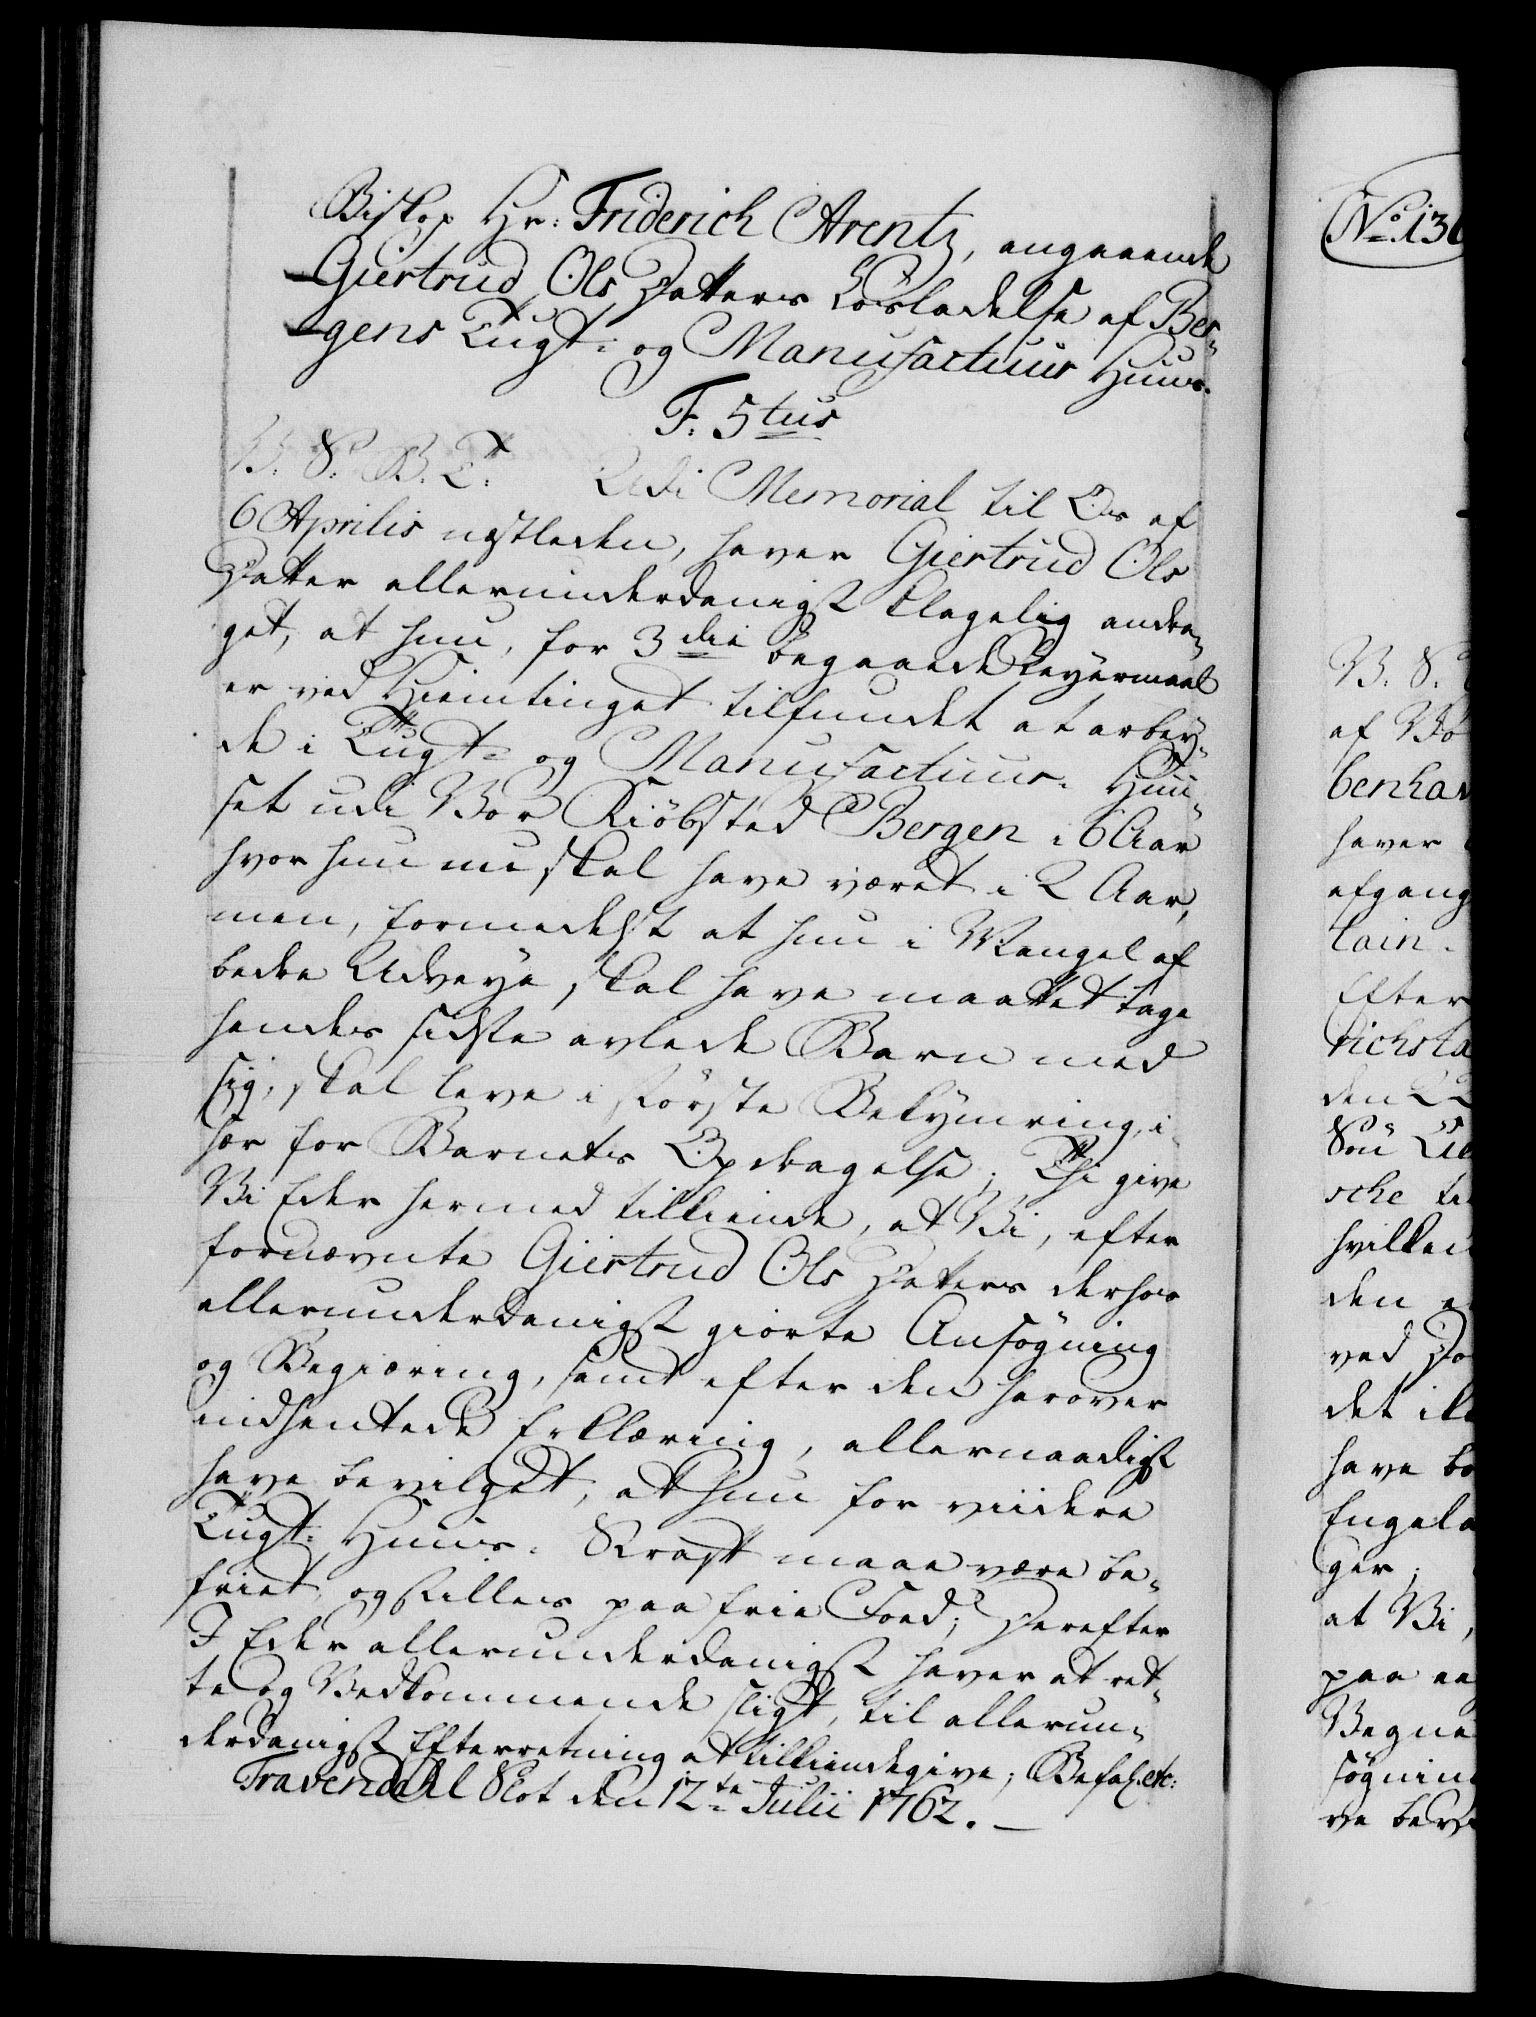 Biskop Hr: Friderich Arentz, angaaende
Giertrud Ols Datters Lösladelse af Ber-
gens Tugt- og Manufactuur Huus.
F. 5tus
V. S. G. T. Udi Memorial til Os af
6 Aprilis næstleden, haver Giertrud Ols
Datter allerunderdanigst klagelig andra-
get, at hun, for 3die begaaede Leyermaal
er ved Hiemtinget tilfundet at arbey-
de i Tugt- og Manufactuur- Huu-
set udi Vor Kiöbsted Bergen i 6 Aar
hvor hun nu skal have været i 2 Aar,
men, formedelst at hun i Mangel af
bedre Udveye, skal have maattet tage
hendes sidste avlede Barn med
sig, skal leve i störste Bekymring, i-
sær for Barnets Opdragelse; Thi give
Vi Eder hermed tilkiende, at Vi, efter
fornævnte Giertrud Ols Datters derhos
allerunderdanigst giorte Ansögning
og Begiæring, samt efter den herover
indhentede Erklæring, allernaadigst
have bevilget, at hun for viidere
Tugt- Huus- Straff maae være be-
friet, og stilles paa frie Foed; Derefter
I Eder allerunderdanigst haver at ret-
te og Vedkommende sligt, til allerun-
derdanigst Efterretning at tilkiendegive; Befal. etc:
Travendahl Slot den 12te Julii 1762.
No. 136
V. S.
af Vo
benhav
haver
afgang
tain
Efter
richsta
den 22
Sön
sche
hvilken
den
ved Do
det ik
have be
Engela
ger;
at Vi,
paa
Vegne
sögning
ve bev